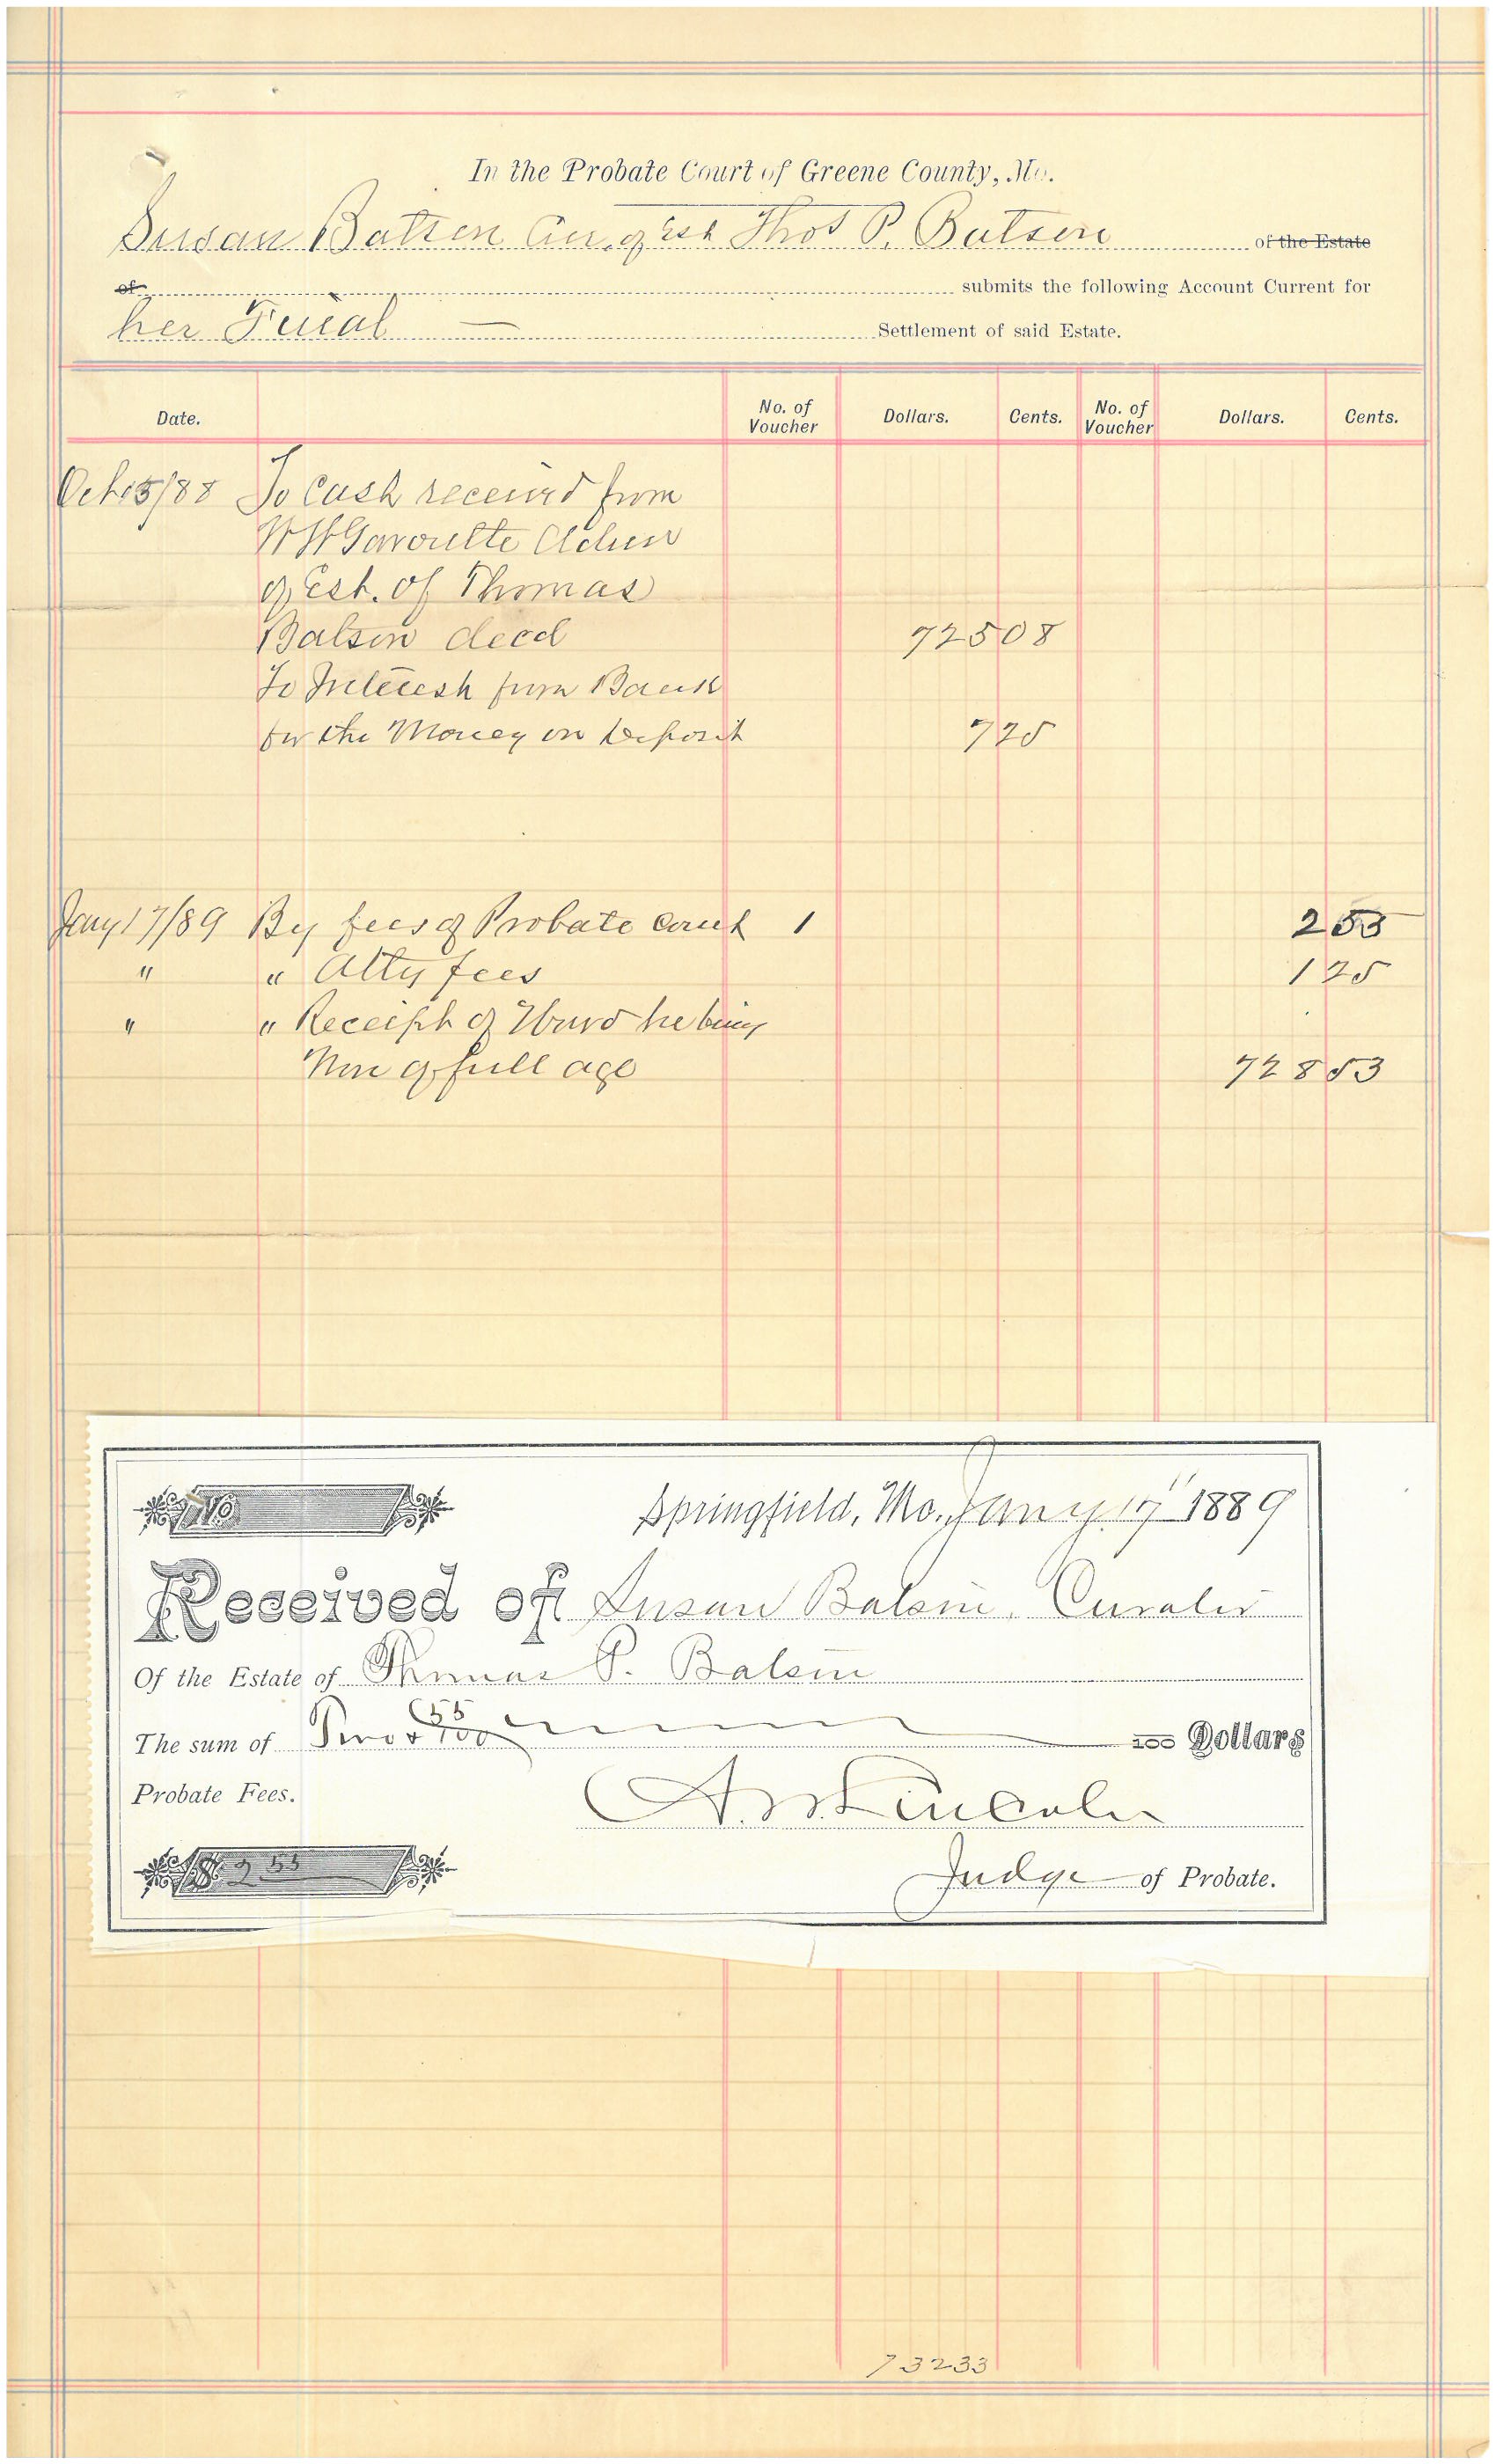 In the Probate Court of Greene County, Mo.
Susan Batson Cur. of Est Thos P. Batson of the Estate
of submits the following Account Current for
her Final Settlement of said Estate.
Date. No. of Voucher Dollars. Cents. No. of Voucher Dollars. Cents.
Oct 15/88 To Cash received from
W W Gavoutte Admr
of Est. of Thomas
Batson decd 725 08
To Interest from Bank
for the Money on Deposit 7 25
Jany 17/89 By fees of Probate Court 1 2 55
" " Atty fees 1 25
" " Receipt of Ward he being
now of full age 728 53
No
Springfield, Mo., Jany 17" 1889
Received of Susan Batson, Curator
Of the Estate of Thomas P. Batson
The sum of Two & 55/100 100 Dollars
Probate Fees. Lincoln
$ 2 55 Judge of Probate.
732 33